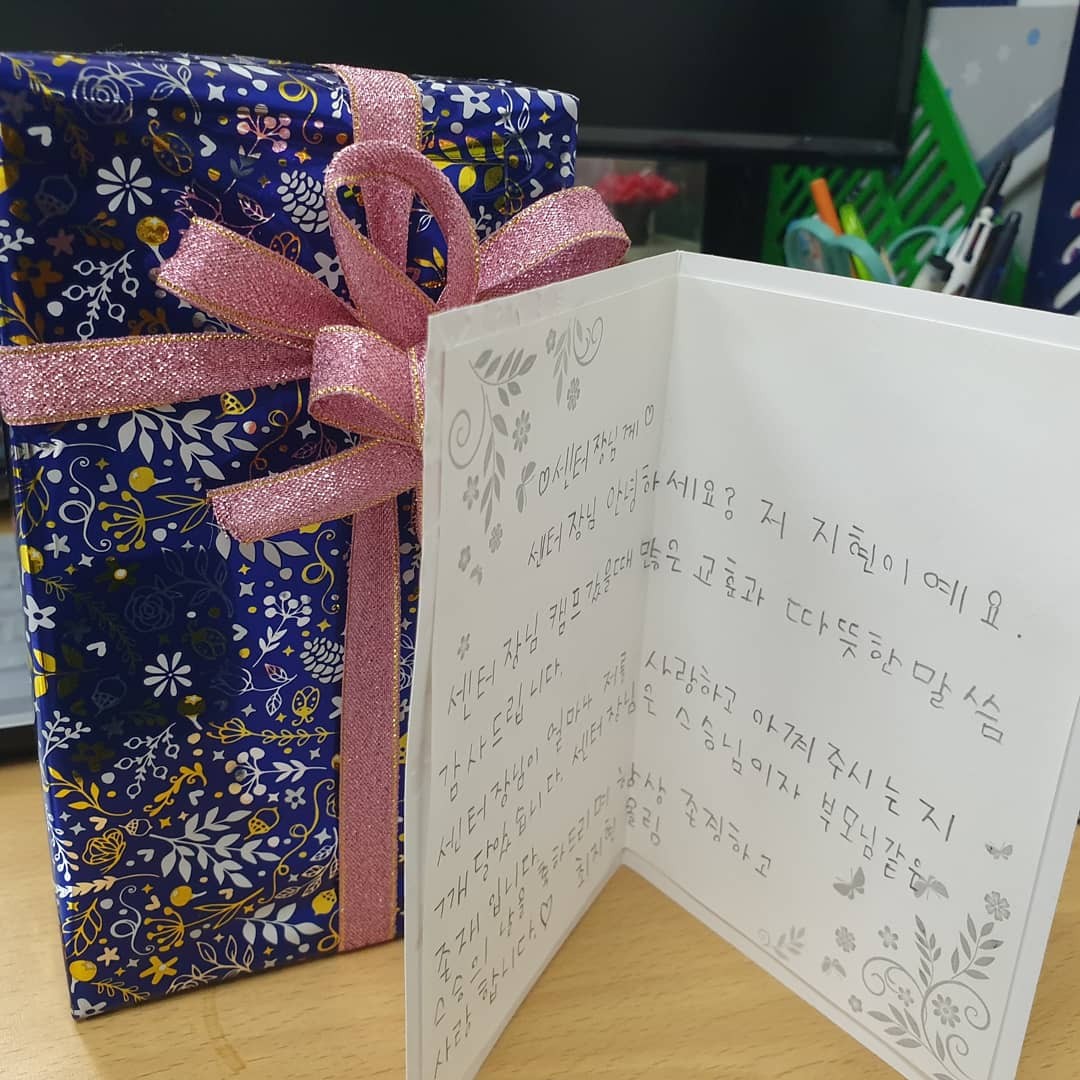 ♡센터장님께♡
센터장님 안녕하세요? 저 지현이예요.
센터장님 캠프갔을때 많은 교훈과 따뜻한 말씀
감사드립니다.
센터장님이 얼마나 저를 사랑하고 아껴주시는지
깨달았습니다. 센터장님은 스승님이자 부모님같은
존재입니다.
스승의 날을 축하드리며 항상 존경하고
사랑합니다.♡ 최지현 올림